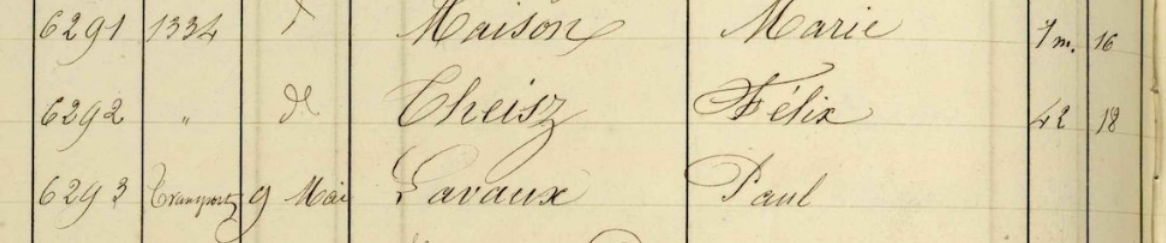 6291 1334 Maison Marie 7 m. 16
6292 " d° Theisz Félix 42 18
6293 Transport 9 Mai Lavaux Paul